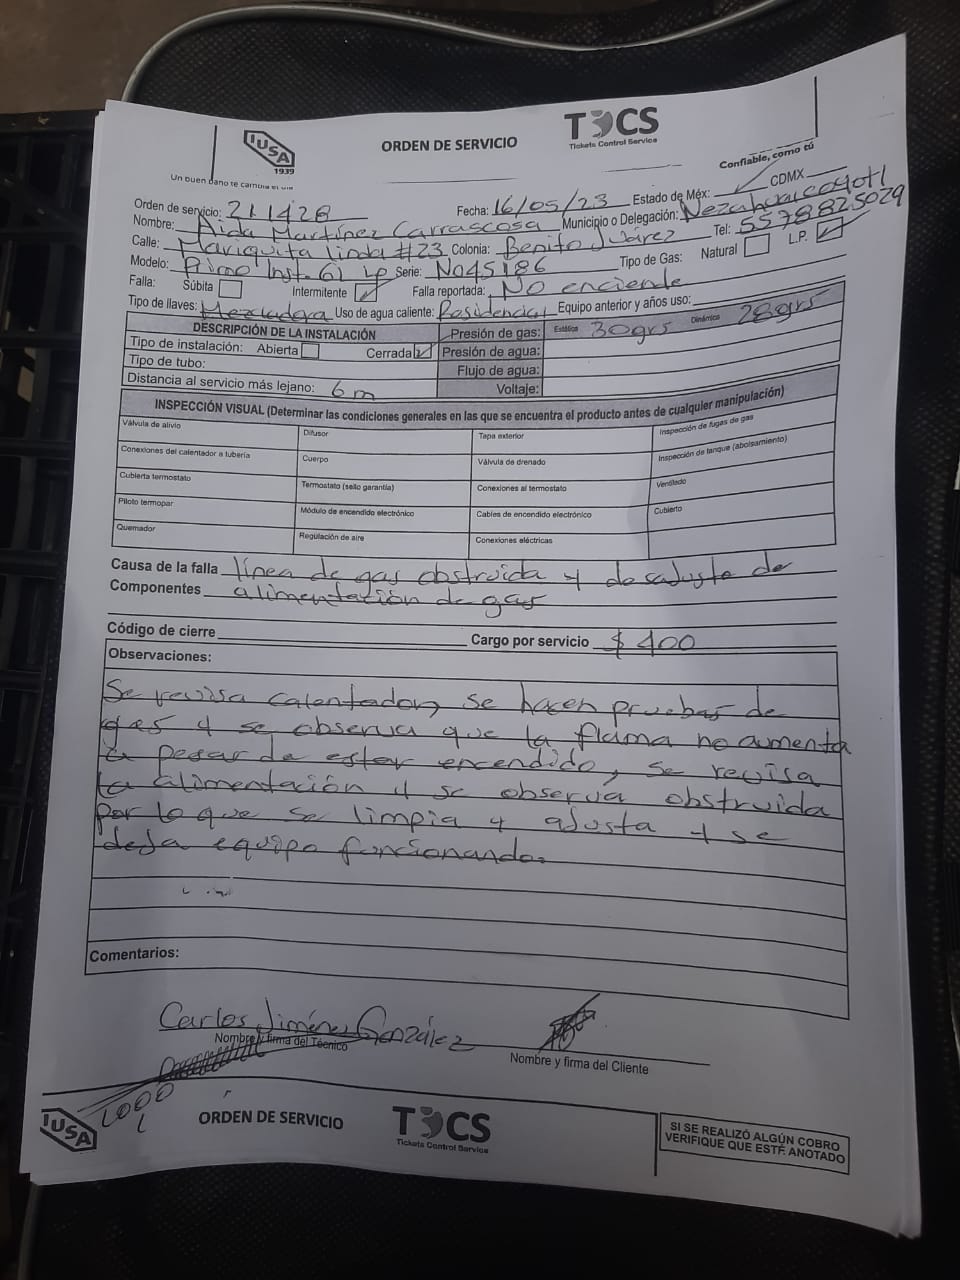 IUSA
1939
Un buen baño te cambia el día
ORDEN DE SERVICIO
TCS
Tickets Control Service
Confiable, como tú
Orden de servicio: 211428 Fecha: 16/05/23 Estado de Méx: ✓ CDMX
Nombre: Aida Martínez Carrascosa Municipio o Delegación: Nezahualcoyotl
Calle: Mariquita linda #23 Colonia: Benito Juárez Tel: 5578825029
Modelo: Primo Inst. 6L LP Serie: N045186 Tipo de Gas: Natural L.P. ✓
Falla: Súbita Intermitente ✓ Falla reportada: No enciende
Tipo de llaves: Mezcladora Uso de agua caliente: Residencial Equipo anterior y años uso:
DESCRIPCIÓN DE LA INSTALACIÓN Presión de gas: Estática 30grs Dinámica 28grs
Tipo de instalación: Abierta Cerrada ✓ Presión de agua:
Tipo de tubo: Flujo de agua:
Distancia al servicio más lejano: 6m Voltaje:
INSPECCIÓN VISUAL (Determinar las condiciones generales en las que se encuentra el producto antes de cualquier manipulación)
Válvula de alivio Difusor Tapa exterior Inspección de fugas de gas
Conexiones del calentador a tubería Cuerpo Válvula de drenado Inspección de tanque (abolsamiento)
Cubierta termostato Termostato (sello garantía) Conexiones al termostato Ventilado
Piloto termopar Módulo de encendido electrónico Cables de encendido electrónico Cubierto
Quemador Regulación de aire Conexiones eléctricas
Causa de la falla línea de gas obstruida y desajuste de
Componentes alimentación de gas
Código de cierre Cargo por servicio $ 400
Observaciones:
Se revisa calentador, se hacen pruebas de
gas y se observa que la flama no aumenta
a pesar de estar encendido, se revisa
la alimentación y se observa obstruida
por lo que se limpia y ajusta y se
deja equipo funcionando.
Comentarios:
Carlos Jiménez González
Nombre y firma del Técnico
Nombre y firma del Cliente
1000
L
IUSA
ORDEN DE SERVICIO
TCS
Tickets Control Service
SI SE REALIZÓ ALGÚN COBRO
VERIFIQUE QUE ESTÉ ANOTADO